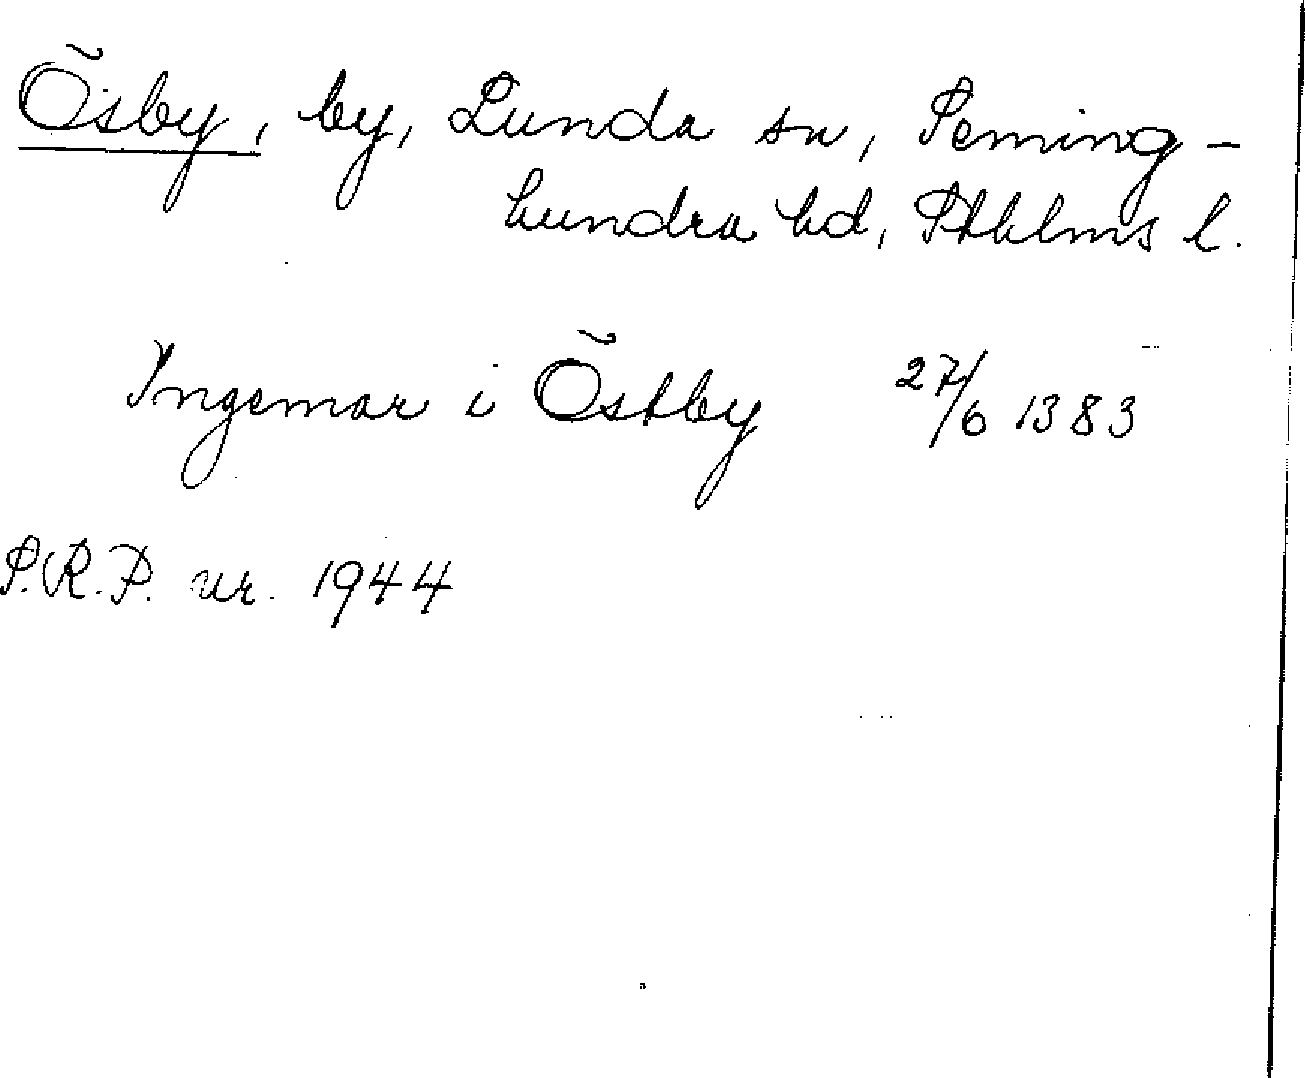 Ösby, by, Lunda sn, Seming-
hundra hd, Sthlms l.
Ingemar i Östby 27/6 1383
S.R.P. nr. 1944